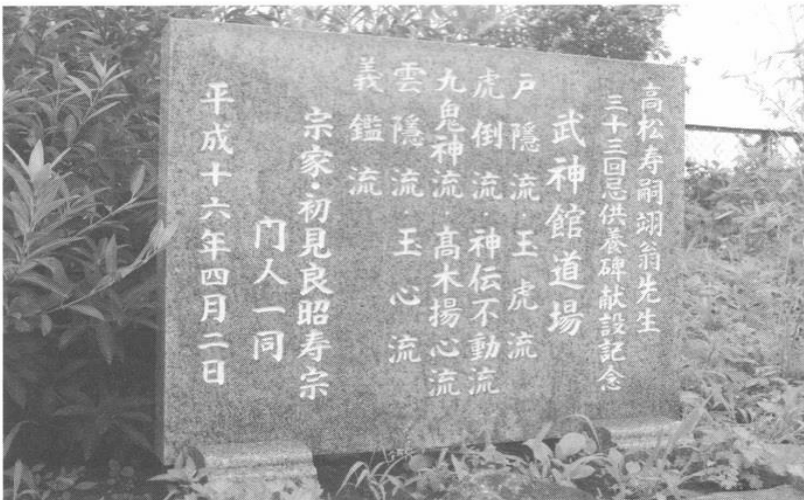 高松寿嗣翊翁先生
三十三回忌供養碑献設記念
武神館道場
戸隠流・玉虎流
虎倒流・神伝不動流
九鬼神流・高木揚心流
雲隠流・玉心流
義鑑流
宗家・初見良昭寿宗
门人一同
平成十六年四月二日